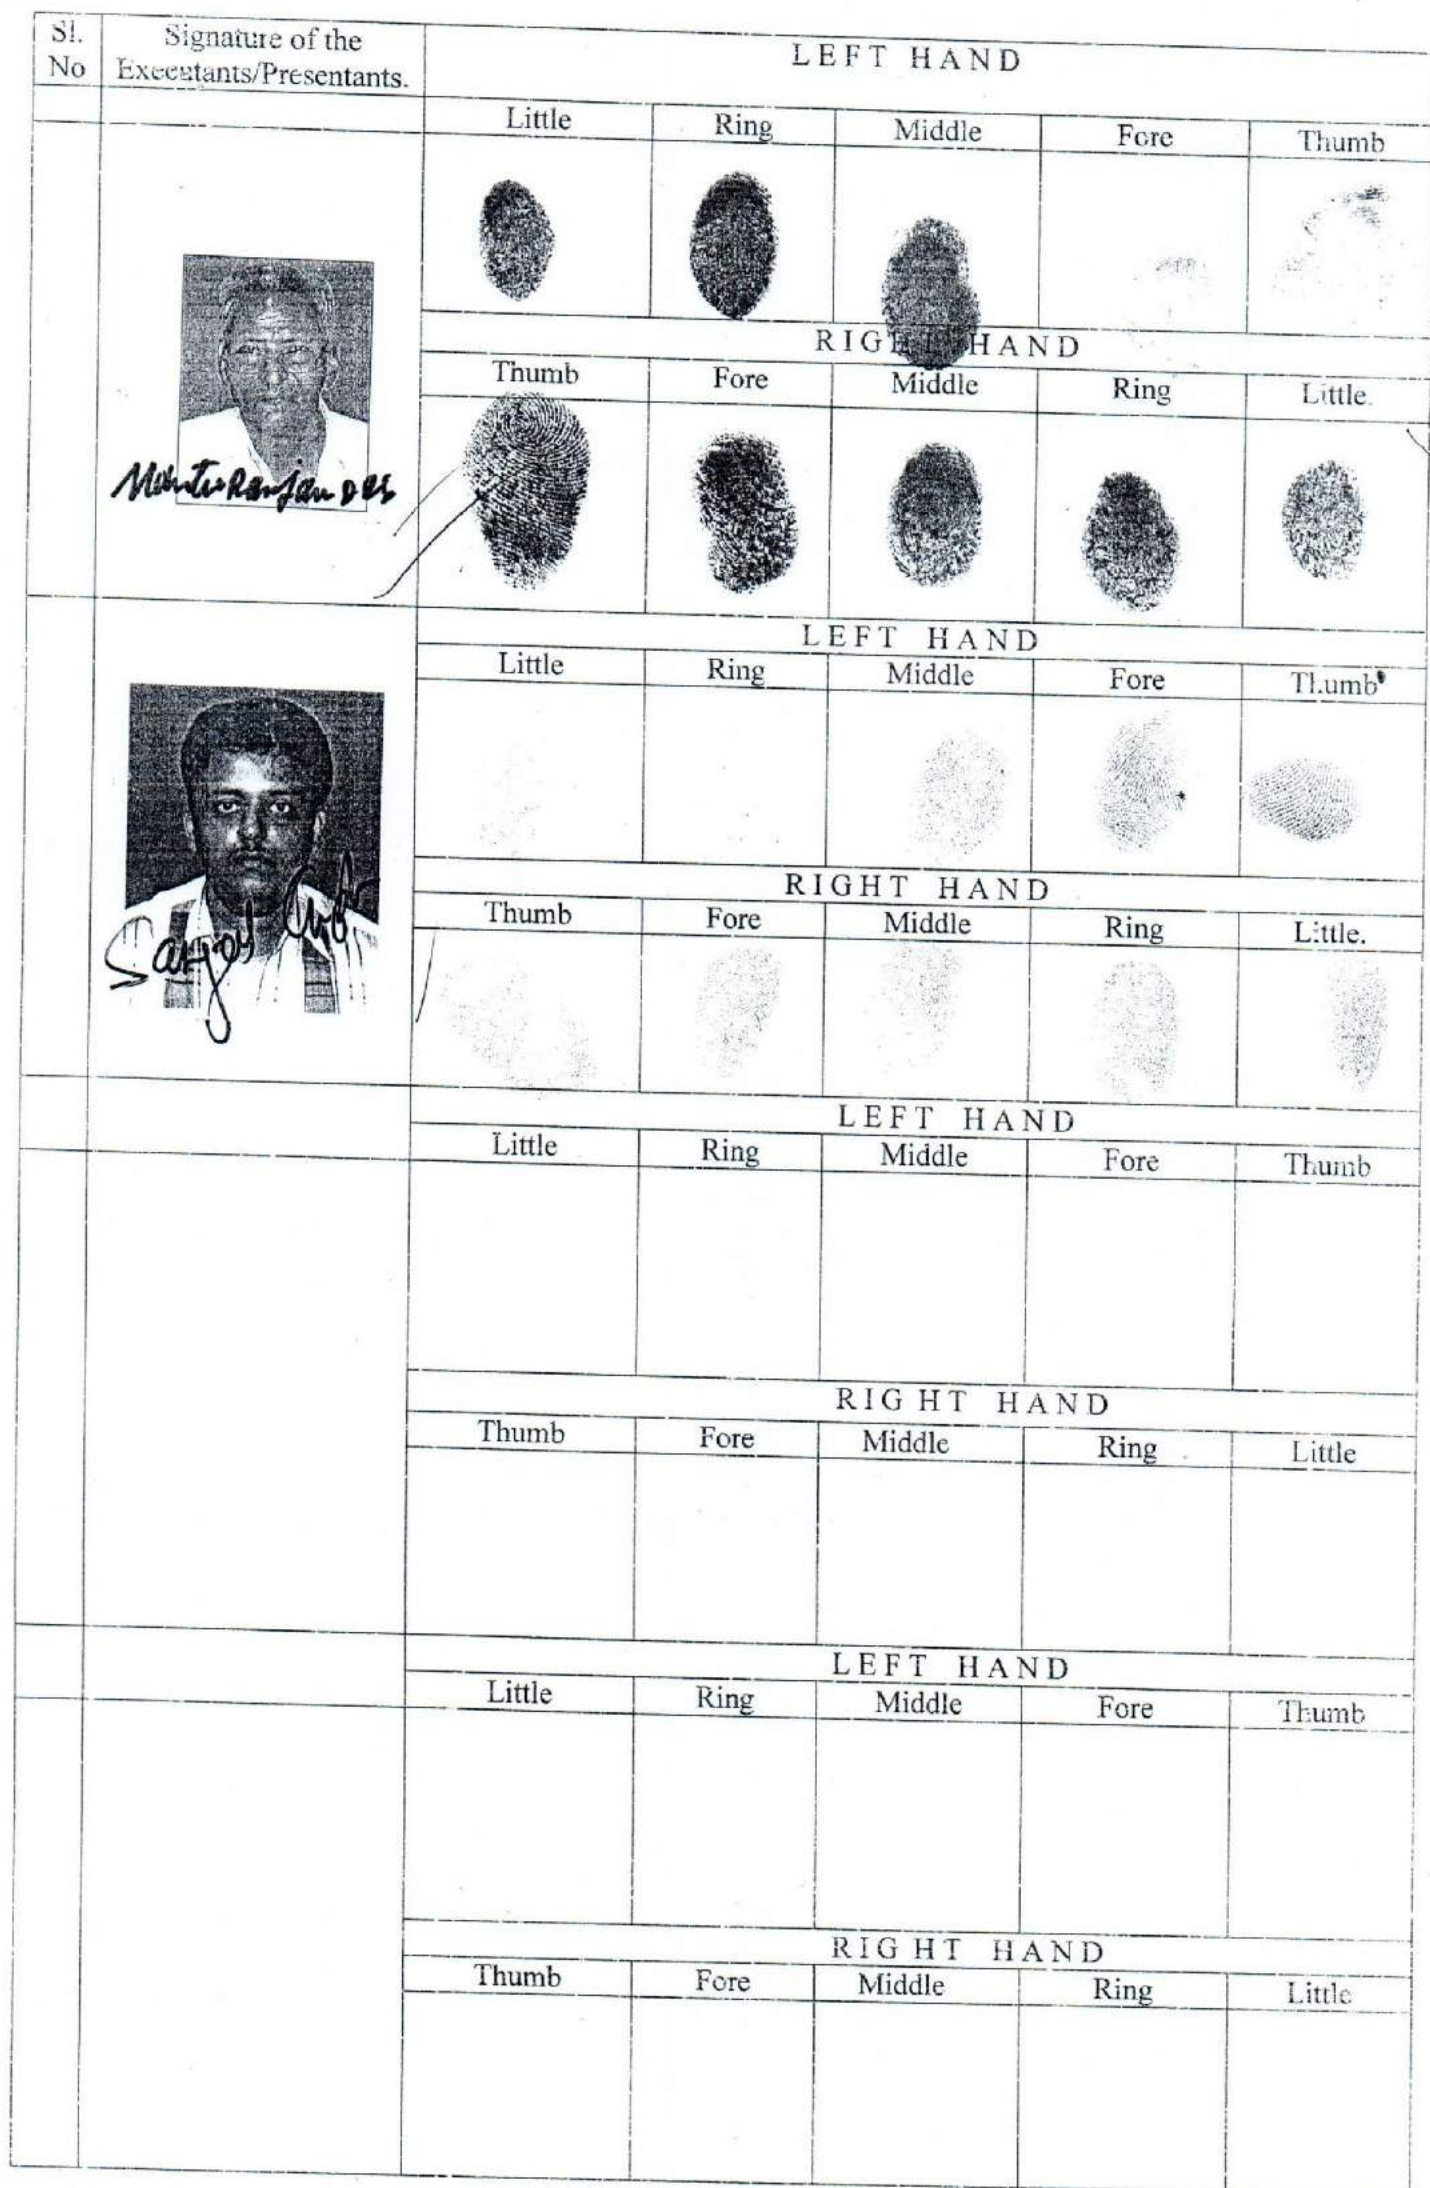 Sl. No
Signature of the Executants/Presentants.
LEFT HAND
Little Ring Middle Fore Thumb
RIGHT HAND
Thumb Fore Middle Ring Little.
Ranjan Das
LEFT HAND
Little Ring Middle Fore Thumb
RIGHT HAND
Thumb Fore Middle Ring Little.
Sanjoy
LEFT HAND
Little Ring Middle Fore Thumb
RIGHT HAND
Thumb Fore Middle Ring Little
LEFT HAND
Little Ring Middle Fore Thumb
RIGHT HAND
Thumb Fore Middle Ring Little